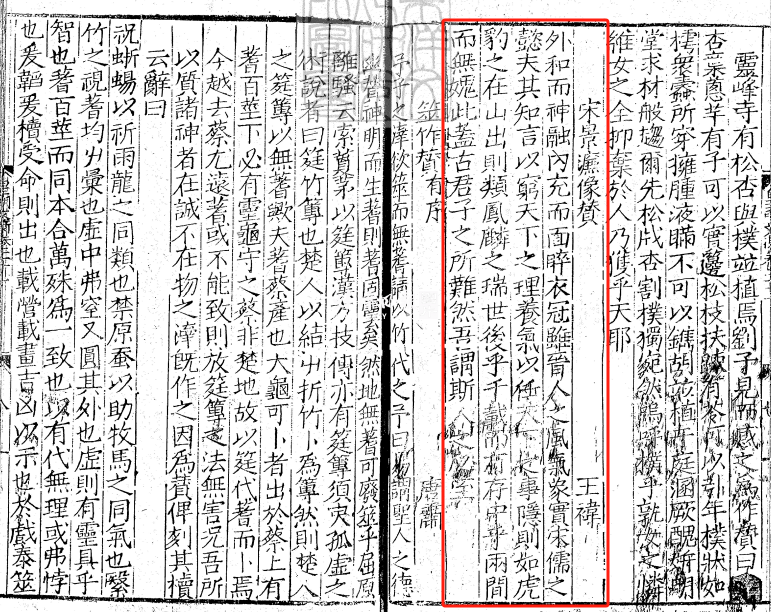 靈峰寺有松杏與樸並植焉劉子見而感之為作賛曰
杏葉蔥芊有子可以實籩松枝扶踈有苓可以引年樸狀如
樗羣蠹所穿擁腫液瞞不可以鐫胡並植于庭涵厥醜妍明
堂求材般趨爾先松戕杏割樸獨宛然嗚呼樸乎孰女之憐
維女之全抑棄於人乃獲乎天耶
宋景濂像賛 王禕
外和而神融內充而面睟衣冠雖晉人之風氣象實宋儒之
懿夫其知言以窮天下之理養氣以任天下之事隱則如虎
豹之在山出則類鳳麟之瑞世後乎千載而有存中乎兩間
而無媿此蓋古君子之所難然吾謂斯人之能至
筮作賛有序 唐肅
以竹代之予曰謂聖人之德
幽賛神明而生蓍則蓍固靈矣然地無蓍可廢筮乎屈原
離騷云索藑茅以筳篿漢方技傳亦有筳篿須臾孤虛之
術說者曰筳竹篿也楚人以結艸折竹卜為篿然則楚人
之筳篿以無蓍歟夫蓍蔡產也大龜可卜者出於蔡上有
蓍百莖下必有靈龜守之蔡非楚地故以筳代蓍而卜焉
今越去蔡尤遠蓍或不能致則放筳篿之法無害況吾所
以質諸神者在誠不在物之滓旣作之因為賛俾刻其櫝
云辭曰
祝蜥蜴以祈雨龍之同類也禁原蚕以助牧馬之同氣也繄
竹之視蓍均艸彙也虛中弗窒又圓其外也虛則有靈具乎
智也蓍百莖而同本合萬殊為一致也以有代無理或弗悖
也爰韜爰櫝受命則出也載營載畫吉凶以示也於戲泰筮